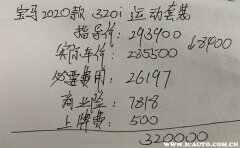 宝马2020款 320i 运动套装
指导价: 293900
实际车价: 285500
↓8900
必要费用: 26197
商业险: 7818
上牌费: 500
320000
WWW.ICAUTO.COM.CN